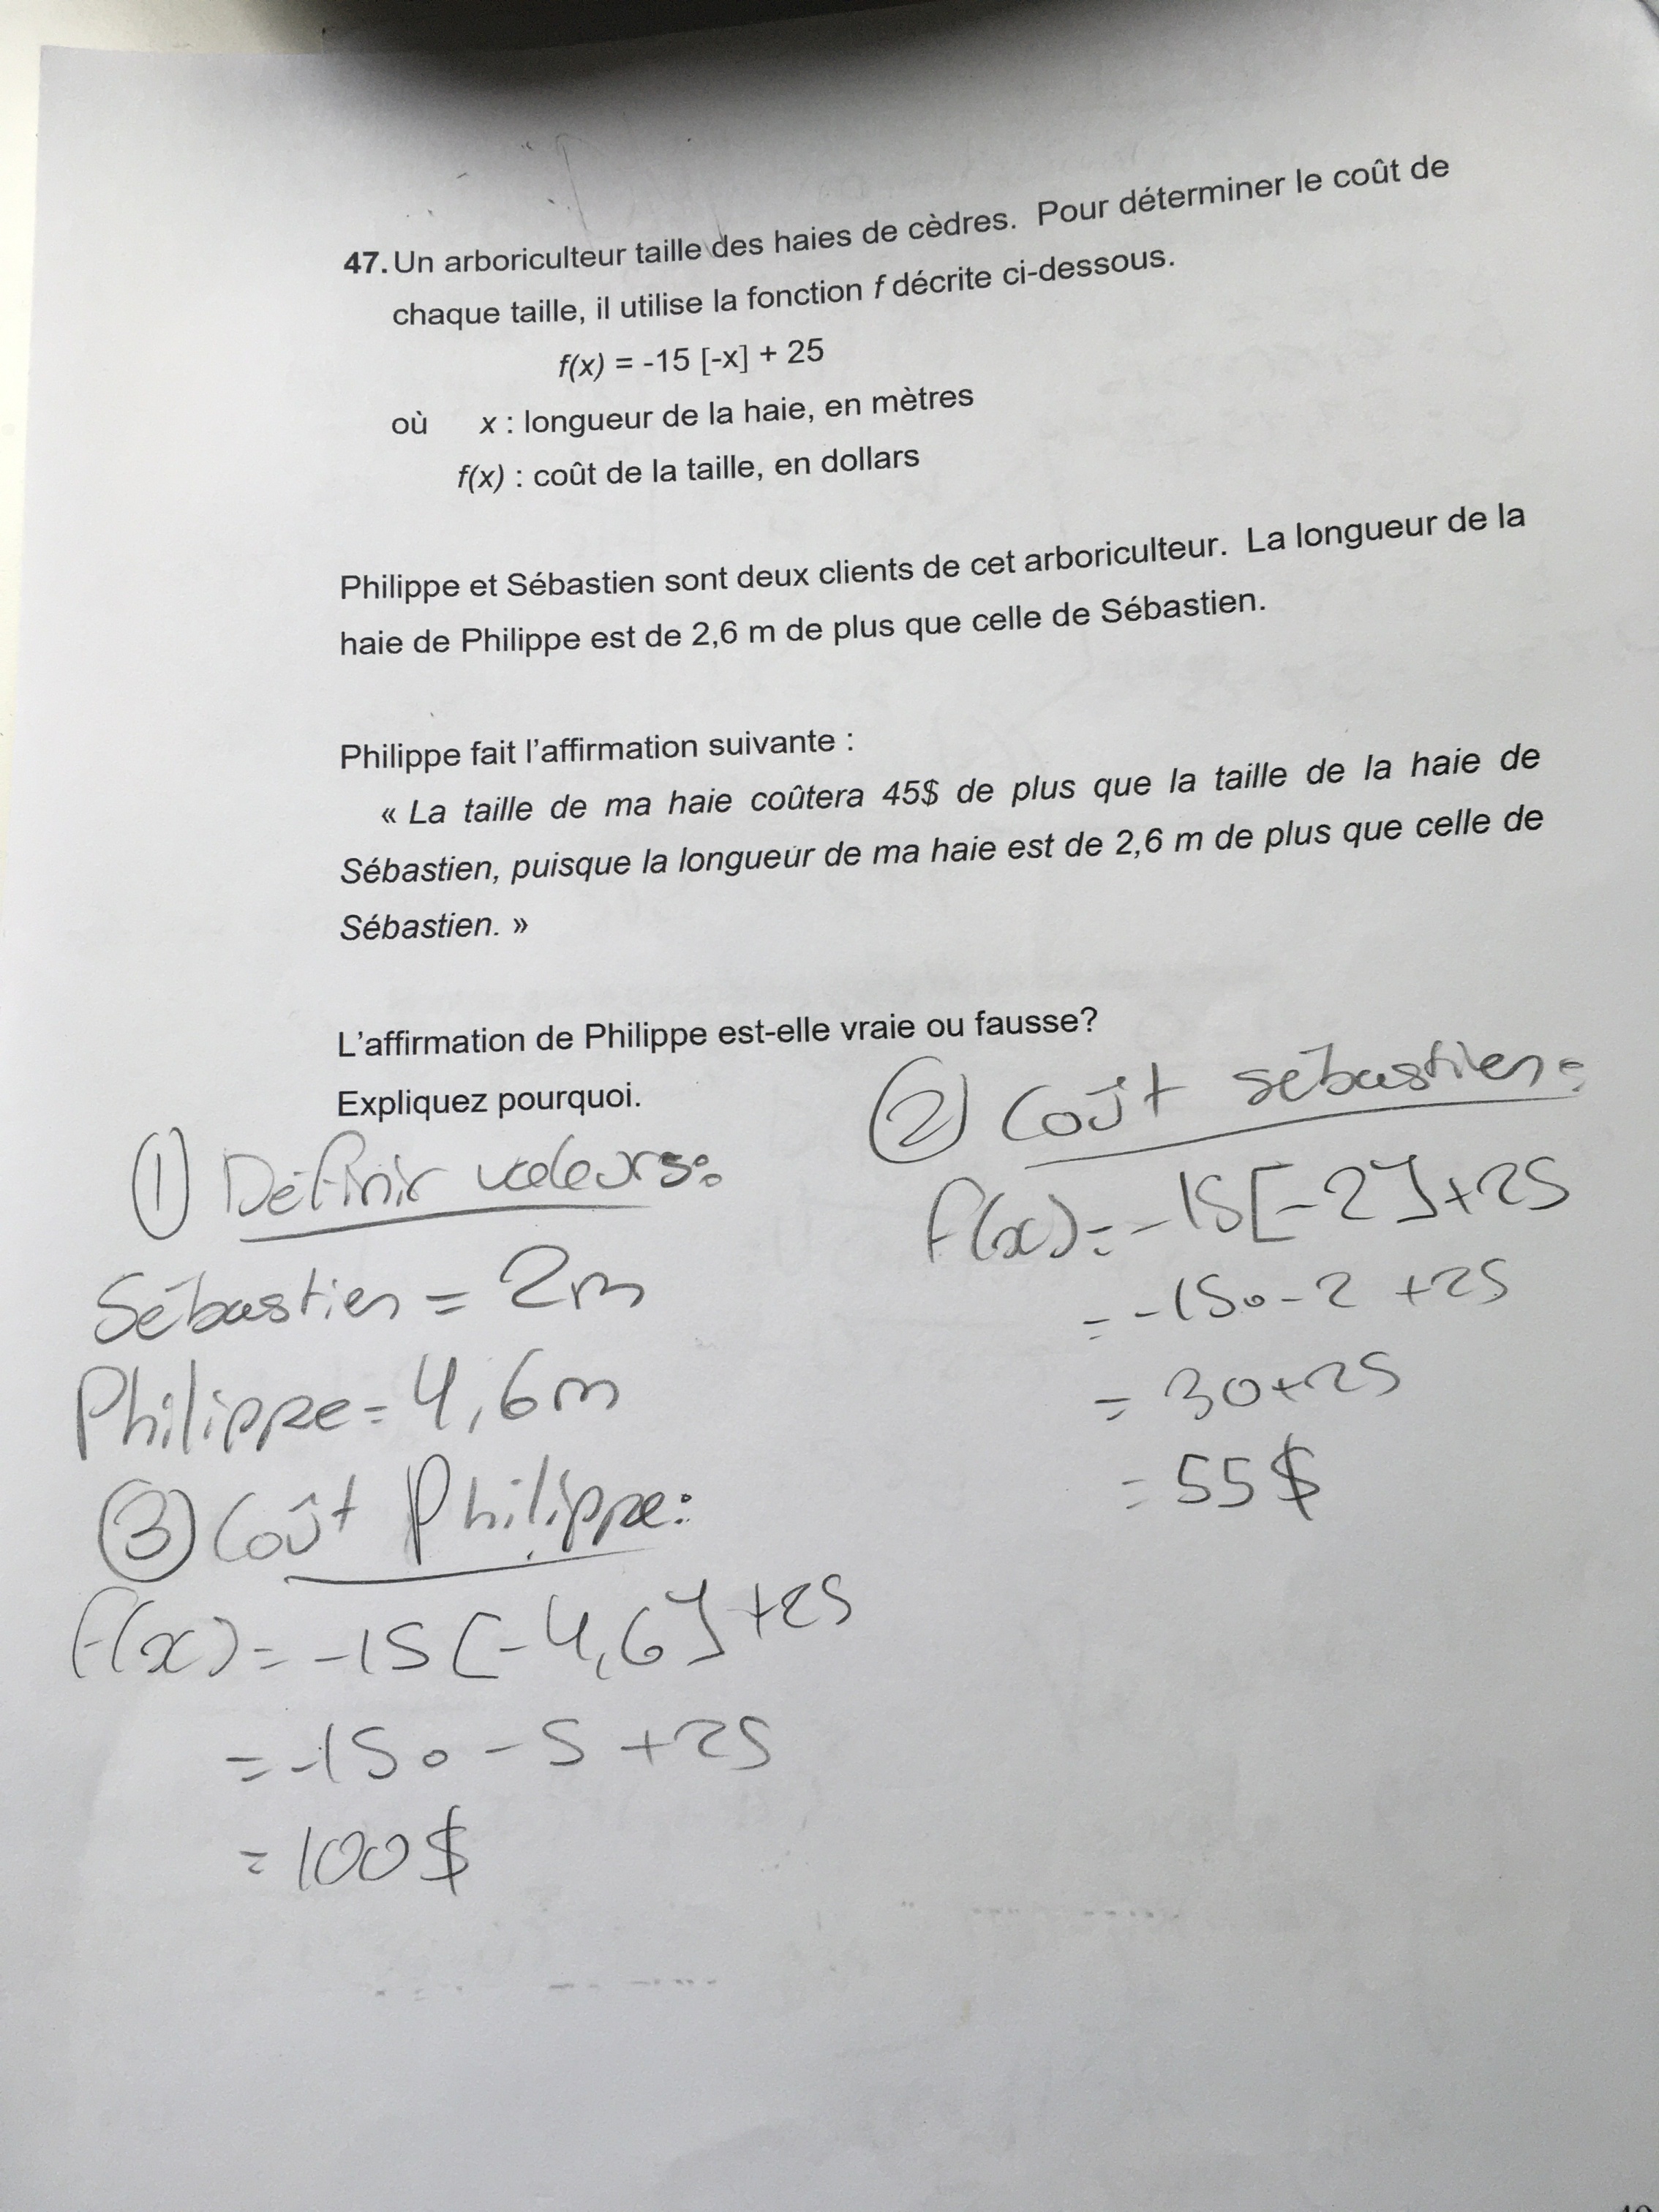 47. Un arboriculteur taille des haies de cèdres. Pour déterminer le coût de
chaque taille, il utilise la fonction f décrite ci-dessous.
f(x) = -15 [-x] + 25
où x : longueur de la haie, en mètres
f(x) : coût de la taille, en dollars
Philippe et Sébastien sont deux clients de cet arboriculteur. La longueur de la
haie de Philippe est de 2,6 m de plus que celle de Sébastien.
Philippe fait l'affirmation suivante :
« La taille de ma haie coûtera 45$ de plus que la taille de la haie de
Sébastien, puisque la longueur de ma haie est de 2,6 m de plus que celle de
Sébastien. »
L'affirmation de Philippe est-elle vraie ou fausse?
Expliquez pourquoi.
① Définir valeurs:
Sébastien = 2m
Philippe = 4,6m
② Coût sébastien:
f(x) = -15[-2]+25
= -15•-2 +25
= 30+25
= 55$
③ Coût Philippe:
f(x) = -15[-4,6]+25
= -15•-5+25
= 100$